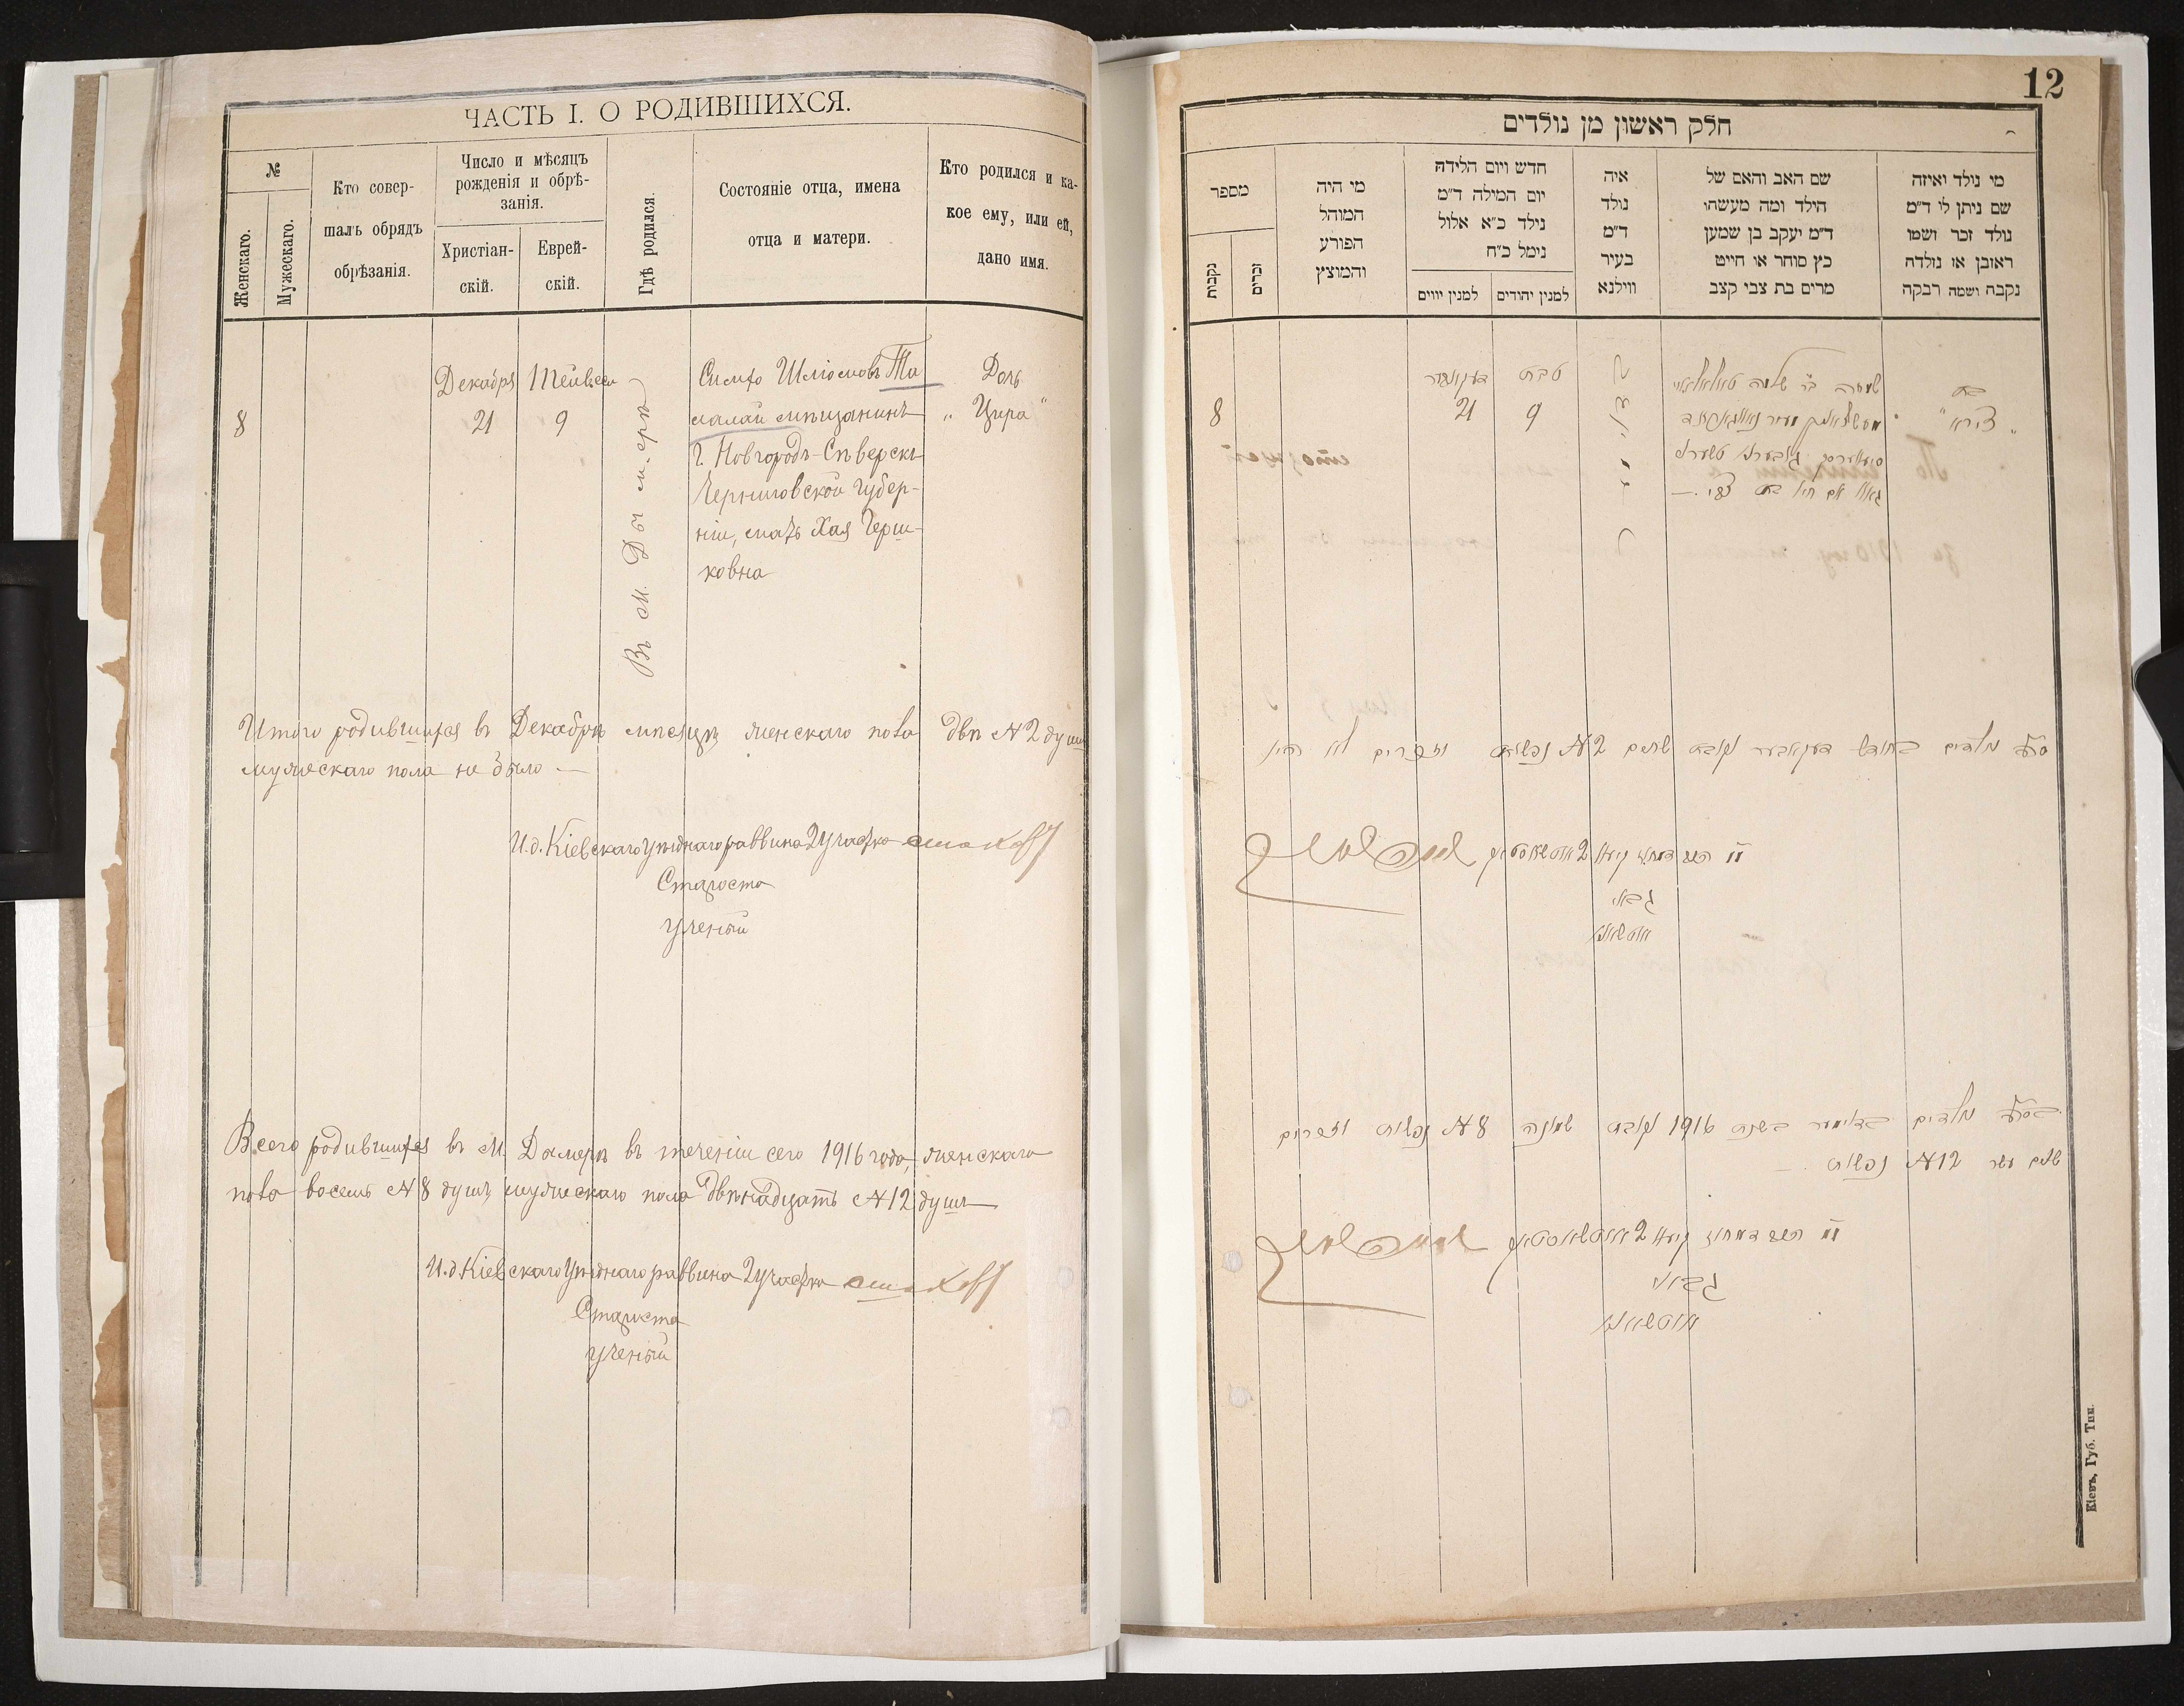 ЧАСТЬ I. О РОДИВШИХСЯ.
№
Женскаго.
Мужескаго.
Кто совер-
шалъ обрядъ
обрѣзанія.
Число и мѣсяцъ
рожденія и обрѣ-
занія.
Христіан-
скій.
Еврей-
скій.
Гдѣ родился.
Состояніе отца, имена
отца и матери.
Кто родился и ка-
кое ему, или ей,
дано имя.
8
Декабря
21
9
Въ м. Дымерѣ
Симхо Шліомовъ Та
малай мѣщанинъ
г. Новгородъ-Сѣверскъ
Черниговской губер-
ніи, мать Хая Герш-
ковна
Дочь
„Цира“
Итого родившихся въ Декабрѣ мѣсяцѣ женскаго пола двѣ №2 душ
мужескаго пола не было —
И.д. Кіевскаго Уѣзднаго раввина 2 участка
Староста
ученый
Всего родившихся въ М. Дымерѣ въ теченіи сего 1916 года, женскаго
пола восемь №8 душъ мужескаго пола двѣнадцать №12 душъ
И.д Кіевскаго Уѣзднаго раввина 2 участка
Староста
ученый
12
חלק ראשון מן נולדים
מספר
נקבות
זכרים
מי היה
המוהל
הפורע
והמוצץ
חדש ויום הלידה
יום המילה ד״מ
נילד כ״א אלול
נימל כ״ח
למנין יווים
למנין יהודים
איה
נולד
ד״מ
בעיר
ווילנא
שם האב והאם של
הילד ומה מעשהו
ד״מ יעקב בן שמען
כץ סוחר או חייט
מרים בת צבי קצב
מי נולד ואיזה
שם ניתן לו ד״מ
נולד זכר ושמו
ראובן או נולדה
נקבה ושמה רבקה
8
דעקאבער
21
טבת
9
שמחה ב״ר שלמה
בת
„צירא“
נולדים בחודש דעקאבער נקבות שתים №2 נפשות וזכרים לא היו
גבאי
נולדים בדימער בשנת 1916 נקבות שמונה №8 נפשות וזכרים
שנים עשר №12 נפשות
גבאי
Кіевъ, Губ. Тип.